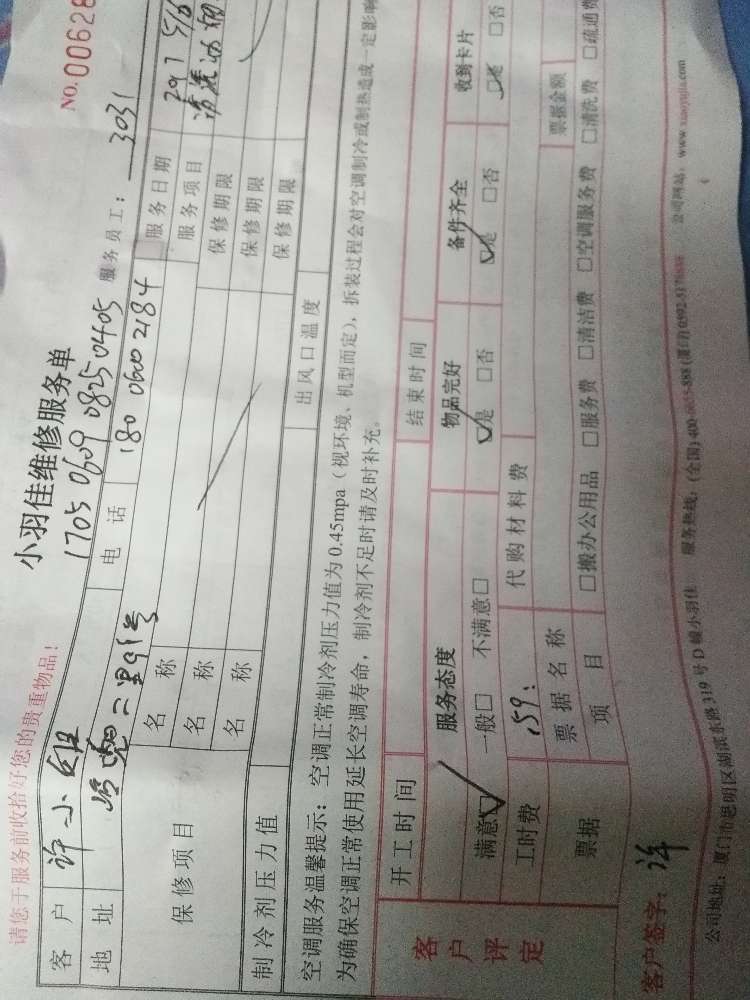 请您于服务前收拾好您的贵重物品!
小羽佳维修服务单
NO.00628
1705 0609 0825 0405 服务员工: 3031
客户 许小姐 电话 180 0600 2184 服务日期
地址 二里91号 服务项目 清洗油烟
保修项目
名称 保修期限
名称 保修期限
名称 保修期限
制冷剂压力值 出风口温度
空调服务温馨提示: 空调正常制冷剂压力值为 0.45mpa(视环境、机型而定), 拆装过程会对空调制冷或制热造成一定影响
为确保空调正常使用延长空调寿命, 制冷剂不足时请及时补充。
开工时间 结束时间
客户评定
服务态度 物品完好 备件齐全 收到卡片
满意☑ 一般□ 不满意□ ☑是 □否 ☑是 □否 ☑是 □否
工时费 159: 代购材料费
票据 票据名称 票据金额
项目 □搬办公用品 □服务费 □清洁费 □空调服务费 □清洗费 □疏通费
客户签字: 许
公司地址: 厦门市思明区湖滨东路 319 号 D 幢小羽佳 服务热线: (全国) 公司网站: www.xiaoyujia.com